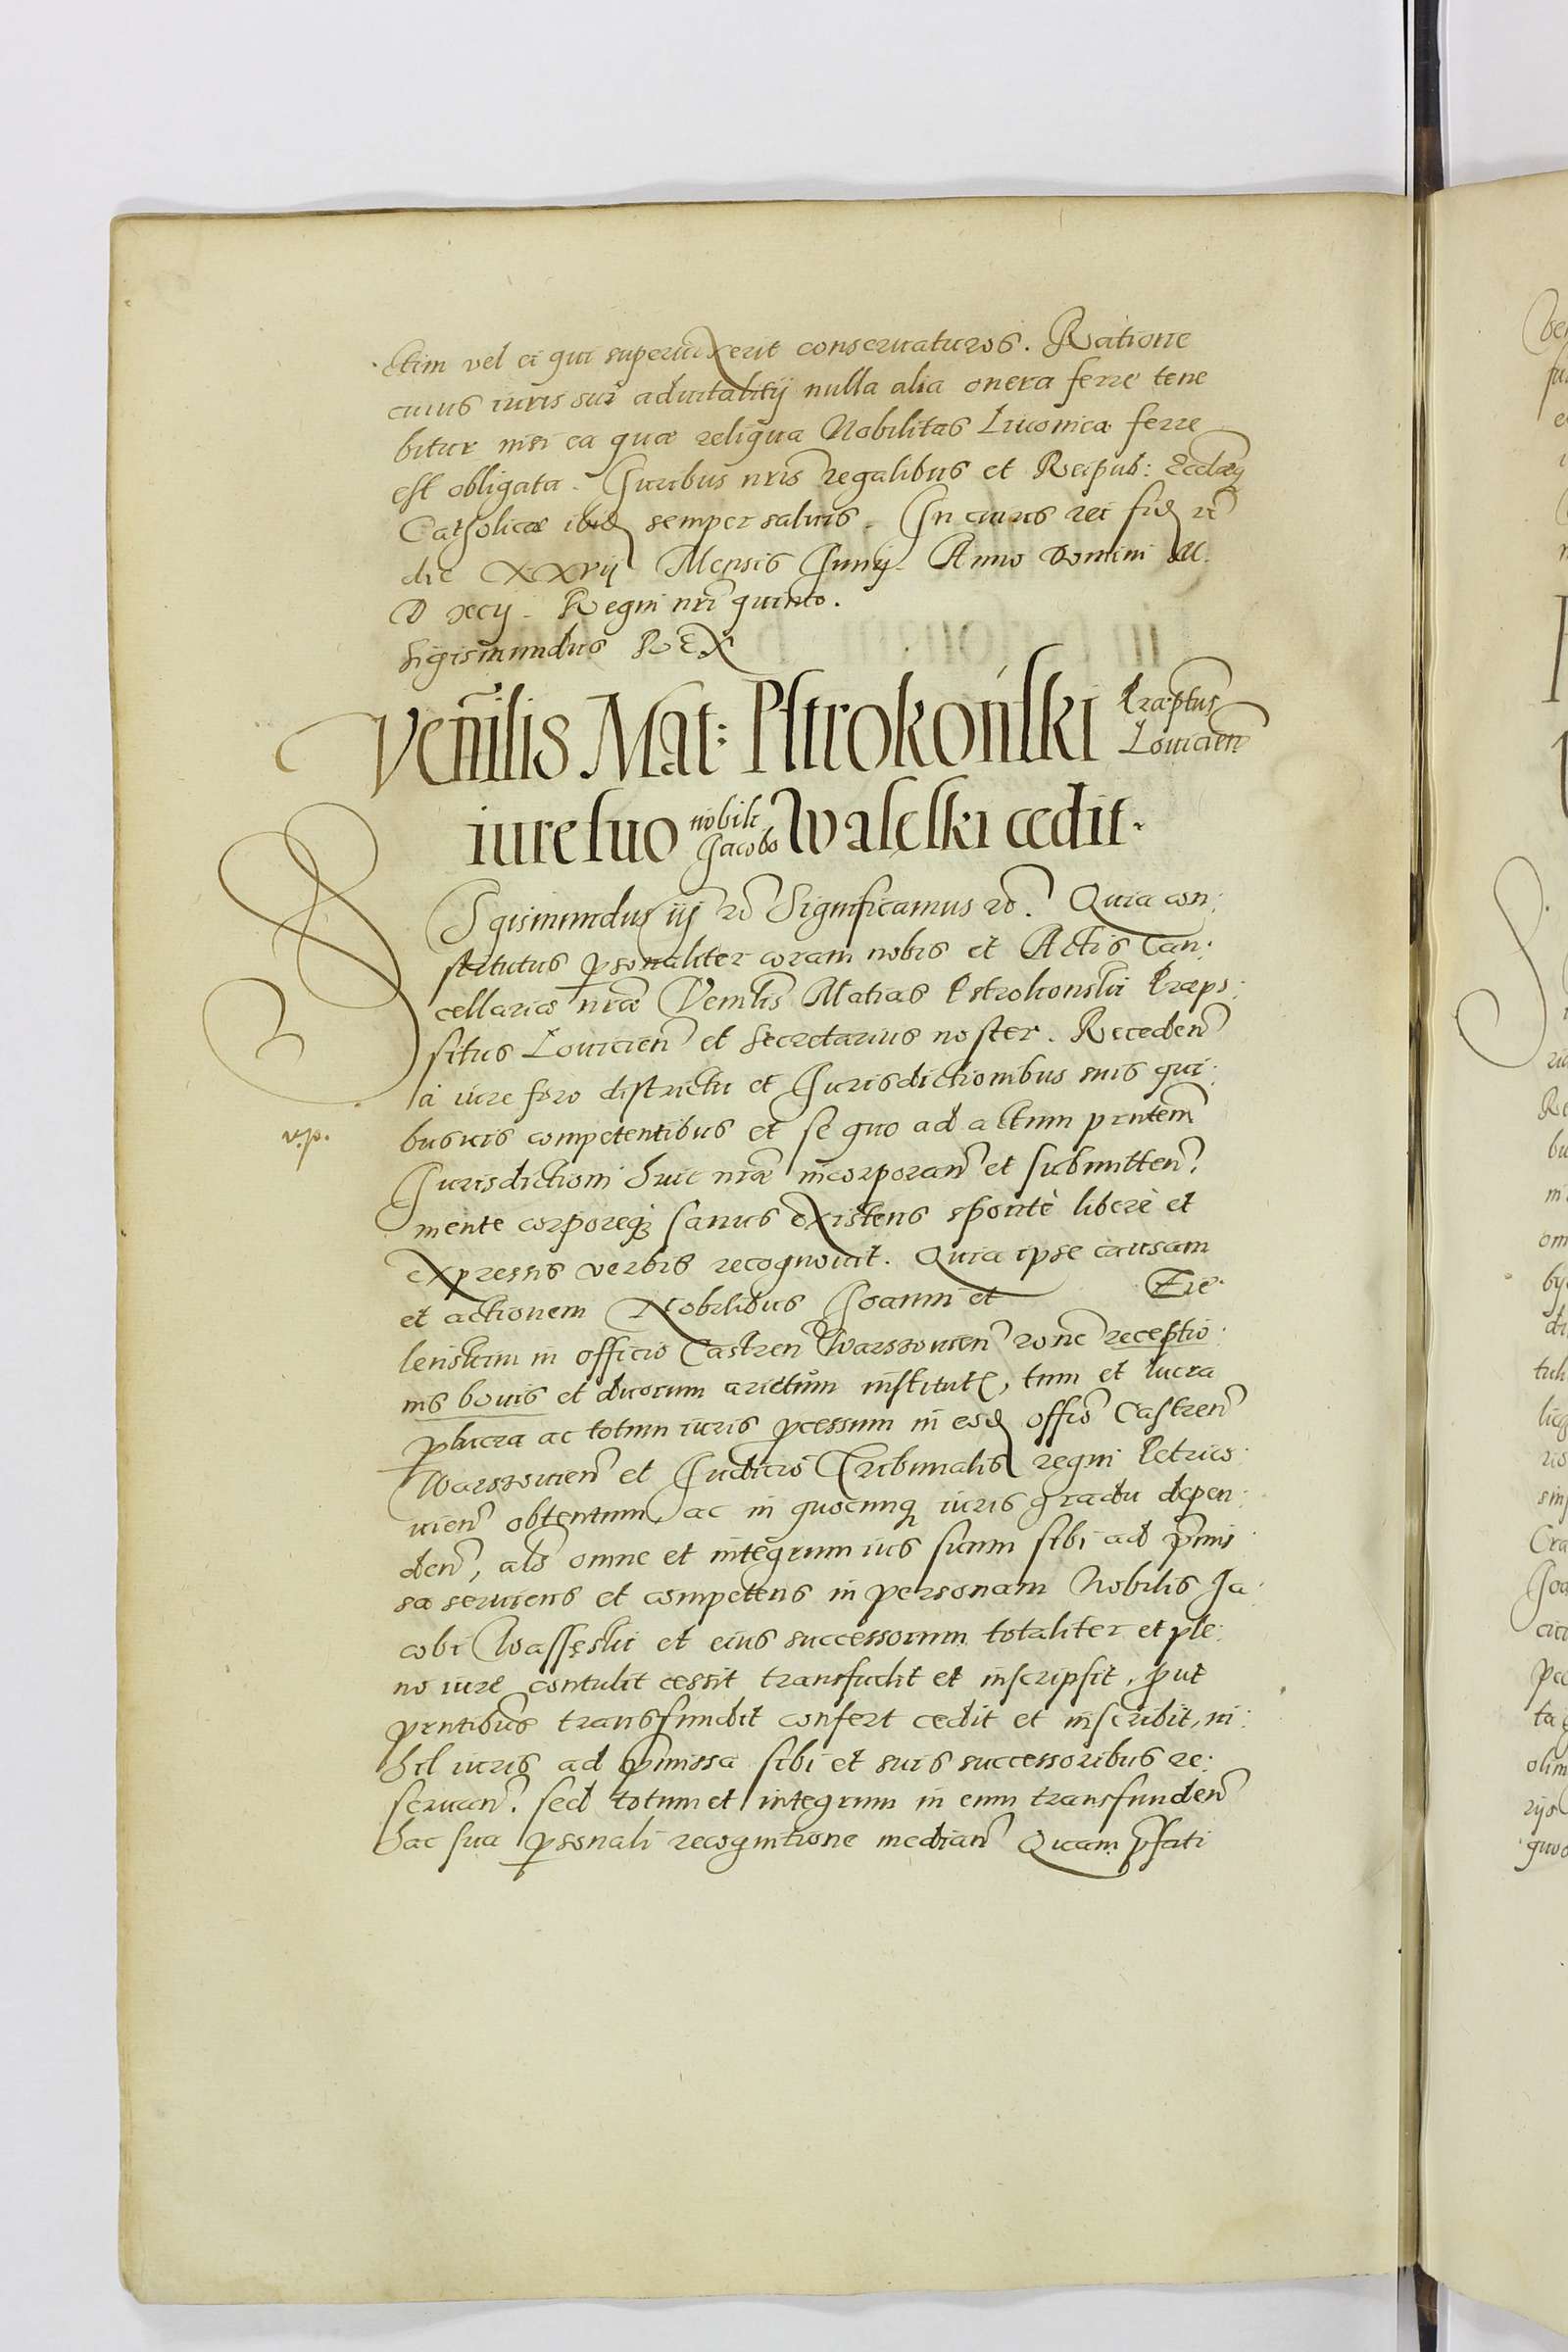 ctim vel ei qui supervixerit conservaturos. Ratione
cuius iuris sui advitalitij nulla alia onera ferre tene
bitur nisi ea quæ reliqua Nobilitas Livonica ferre
est obligata. Iuribus nris regalibus et Reipub: Ecclæq
Catholicæ ibid semper salvis. In cuius rei fid
die XXVII Mensis Iunij. Anno Domini M.
D xcij. Regni nri quinto.
Sigismundus REX
Venrilis Mat: Pstrokoński Præptus
Lovicien
iure suo nobili Jacobo Walęski cedit.
Sgismundus iij Significamus. Quia con:
stitutus psonaliter coram nobis et Actis Can:
cellariæ nræ Venrlis Matias Pstrokonski Præpo:
situs Lovicien et Secretarius noster. Receden
à iure foro districtu et Iurisdictionibus suis qui:
busvis competentibus et se quo ad actum pntem
v.p.
Iurisdictioni huic nræ incorporan et submitten.
mente corporeq sanus existens spontè liberè et
expressis verbis recognovit. Quia ipse causam
et actionem Nobilibus Joanni et Zie:
lenskim in officio Castren Warssovien rone receptio:
nis bovis et duorum arietum institut, tum et lucra
plucra ac totum iuris pcessum in eod offio Castren
Warssovien et Iudicio Tribunalis regni Petrico:
vien obtentum, ac in quocunq iuris gradu depen:
den, als omne et integrum ius suum sibi ad pmis
sa serviens et competens in personam Nobilis Ja:
cobi Wassęski et eius successorum totaliter et ple:
no iure contulit cessit transfudit et inscripsit, put
pntibus transfundit confert cedit et inscribit, ni:
hil iuris ad pmissa sibi et suis successoribus re:
servan. sed totum et integrum in eum transfunden
hac sua psonali recognitione median Quam pfati